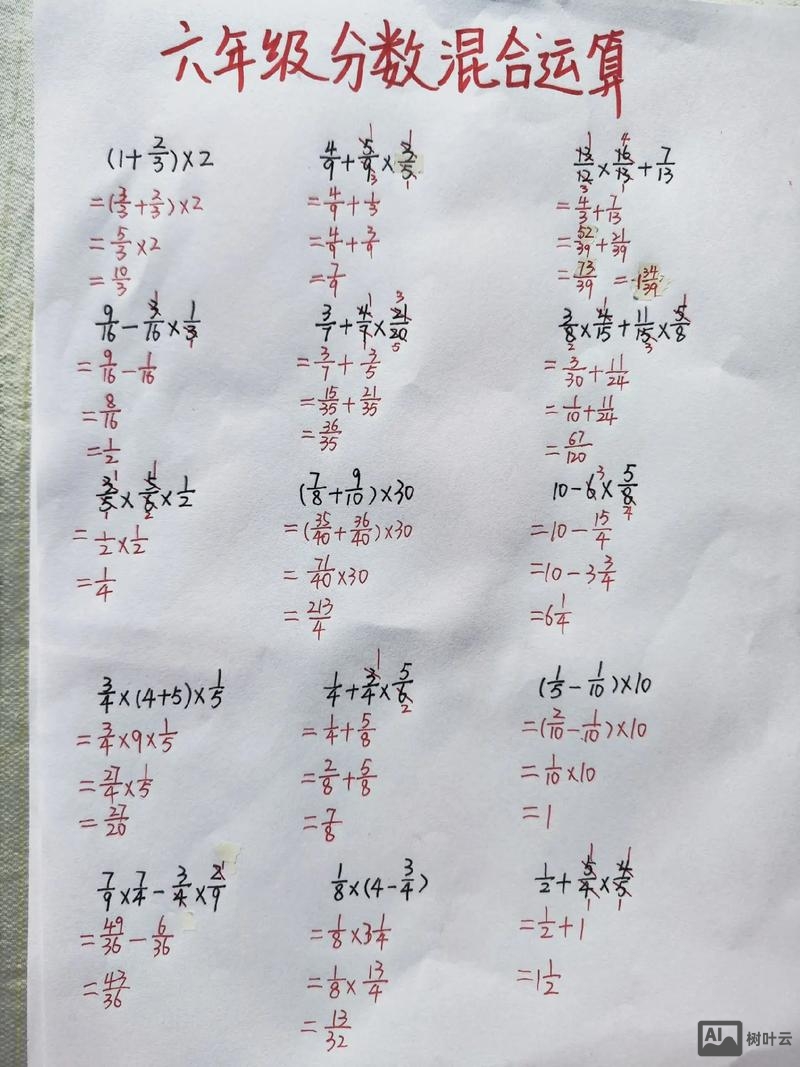 六年级分数混合运算
(1+2/3)×2
=(3/3+2/3)×2
=5/3×2
=10/3
4/9+5/9×3/5
=4/9+1/3
=4/9+3/9
=7/9
13/12×16/13+7/13
=4/3+7/13
=52/39+21/39
=73/39 =1 34/39
9/16-3/16×1/3
=9/16-1/16
=8/16
=1/2
3/7+4/7×21/20
=3/7+3/5
=15/35+21/35
=36/35
3/8×4/15+11/15×5/8
=3/30+11/24
=1/10+11/24
=67/120
3/5×5/6×1/2
=1/2×1/2
=1/4
(7/8+9/10)×30
=(35/40+36/40)×30
=71/40×30
=213/4
10-6×5/8
=10-15/4
=10-3 3/4
=6 1/4
3/4×(4+5)×1/5
=3/4×9×1/5
=27/4×1/5
=27/20
1/4+3/4×5/6
=1/4+5/8
=2/8+5/8
=7/8
(1/5-1/10)×10
=(2/10-1/10)×10
=1/10×10
=1
7/9×7/4-3/4×2/9
=49/36-6/36
=43/36
1/8×(4-3/4)
=1/8×3 1/4
=1/8×13/4
=13/32
1/2+5/4×4/5
=1/2+1
=1 1/2
AI 树叶云